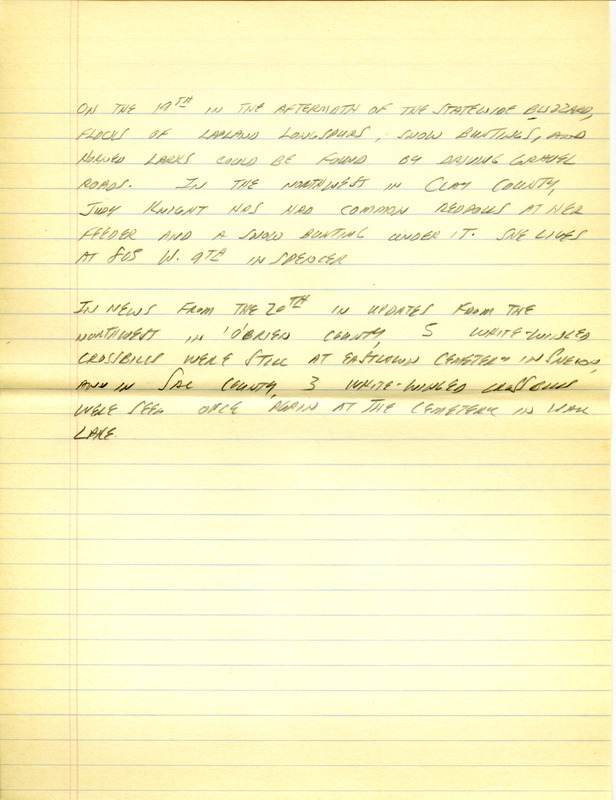 ON THE 19TH IN THE AFTERMATH OF THE STATEWIDE BLIZZARD,
FLOCKS OF LAPLAND LONGSPURS, SNOW BUNTINGS, AND
HORNED LARKS COULD BE FOUND BY DRIVING GRAVEL
ROADS. IN THE NORTHWEST IN CLAY COUNTY,
JUDY KNIGHT HAS HAD COMMON REDPOLLS AT HER
FEEDER AND A SNOW BUNTING UNDER IT. SHE LIVES
AT 805 W. 9TH IN SPENCER
IN NEWS FROM THE 20TH IN UPDATES FROM THE
NORTHWEST IN O'BRIEN COUNTY, 5 WHITE-WINGED
CROSSBILLS WERE STILL AT EASTLAWN CEMETERY IN SHELDON,
AND IN SAC COUNTY, 3 WHITE-WINGED CROSSBILLS
WERE SEEN ONCE AGAIN AT THE CEMETERY IN WALL
LAKE.